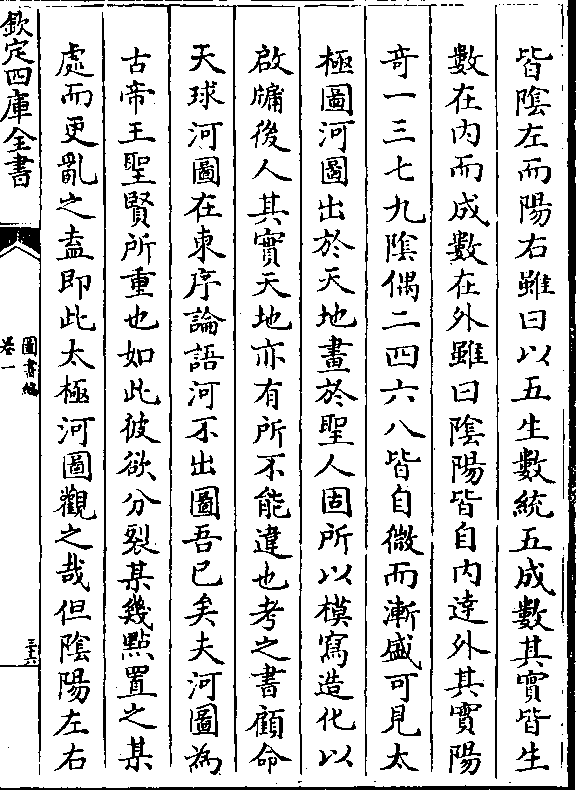 皆陰左而陽右雖曰以五生數統五成數其實皆生
數在内而成數在外雖曰陰陽皆自内達外其實陽
竒一三七九陰偶二四六八皆自微而漸盛可見太
極圖河圖出於天地畫於聖人固所以模寫造化以
啟牖後人其實天地亦有所不能違也考之書顧命
天球河圖在東序論語河不出圖吾已矣夫河圖為
古帝王聖賢所重也如此彼欲分裂某幾點置之某
處而更亂之盍即此太極河圖觀之哉但陰陽左右
欽定四庫全書
圖書編
卷一
三十六